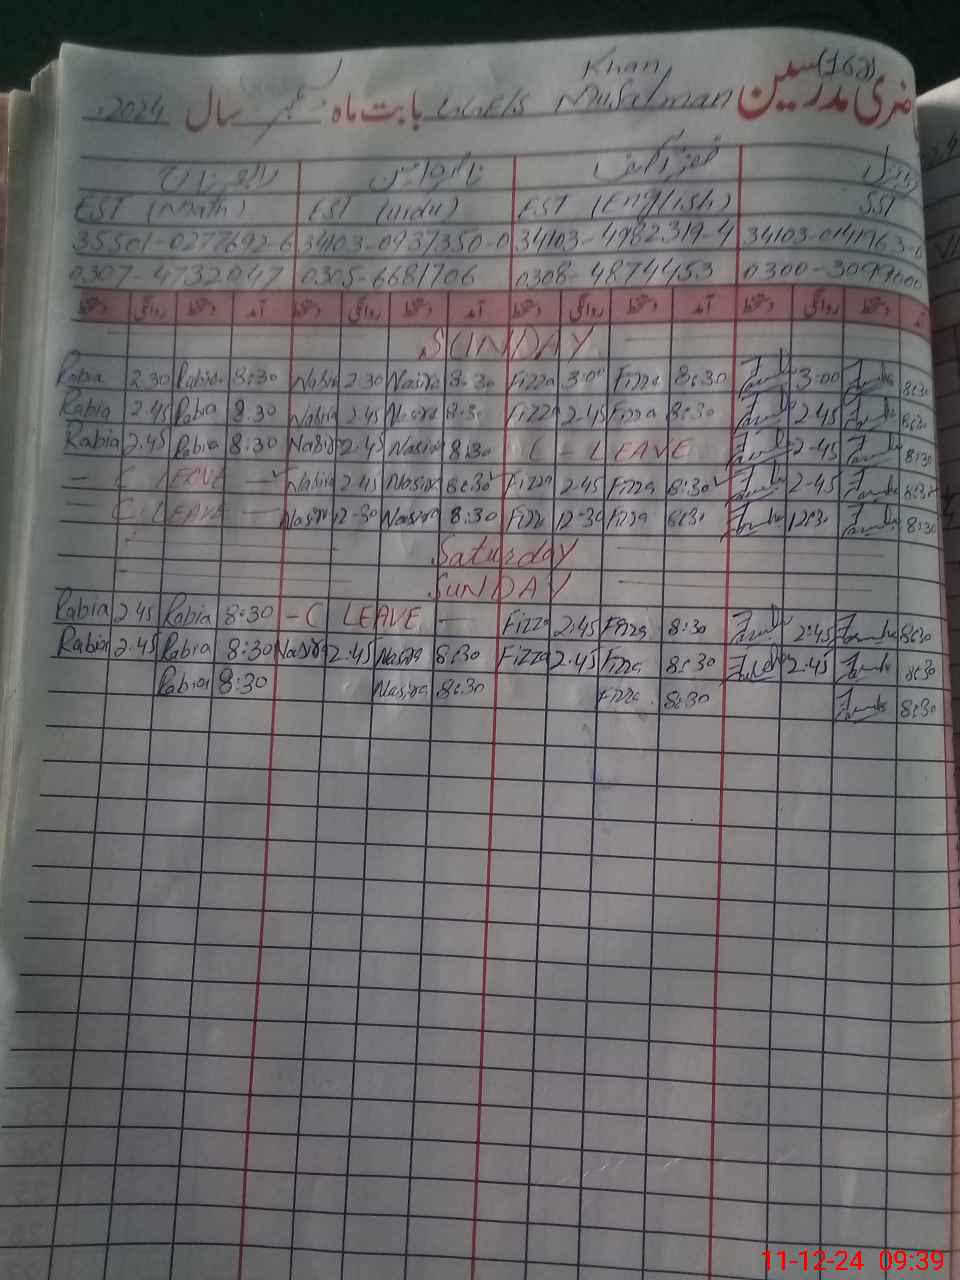 (162)
Khan
ضری مدرسین Musalman GGES بابت ماہ دسمبر سال 2024ء
EST (Math) EST (urdu) EST (English) SST
35501-0277692-6 34103-0937350-0 34103-4982319-4
0307-4732047 0305-6681706 0308-4874453
دستخط روانگی دستخط آمد دستخط روانگی دستخط آمد دستخط روانگی دستخط آمد دستخط روانگی دستخط
SUNDAY
Rabia 2.30 Rabia 8:30 Nasira 2.30 Nasira 8:30 Fizza 3:00 Fizza 8:30 3:00 8:30
Rabia 2.45 Rabia 8.30 Nasira 2.45 Nasira 8:30 Fizza 2-45 Fizza 8:30 2-45 8:30
Rabia 2.45 Rabia 8:30 Nasira 2.45 Nasira 8:30 C - LEAVE 2-45 8:30
- C LEAVE - Nasira 2.45 Nasira 8:30 Fizza 2.45 Fizza 8:30 2-45 8:30
- C. LEAVE - Nasira 12-30 Nasira 8:30 Fizza 12-30 Fizza 8:30 12:30 8:30
Saturday
SUNDAY
Rabia 2.45 Rabia 8:30 - C LEAVE - Fizza 2:45 Fizza 8:30 2:45 8:30
Rabia 2.45 Rabia 8:30 Nasira 2.45 Nasira 8:30 Fizza 2.45 Fizza 8:30 2.45 8:30
Rabia 8:30 Nasira 8:30 Fizza 8:30 8:30
11-12-24 09:39